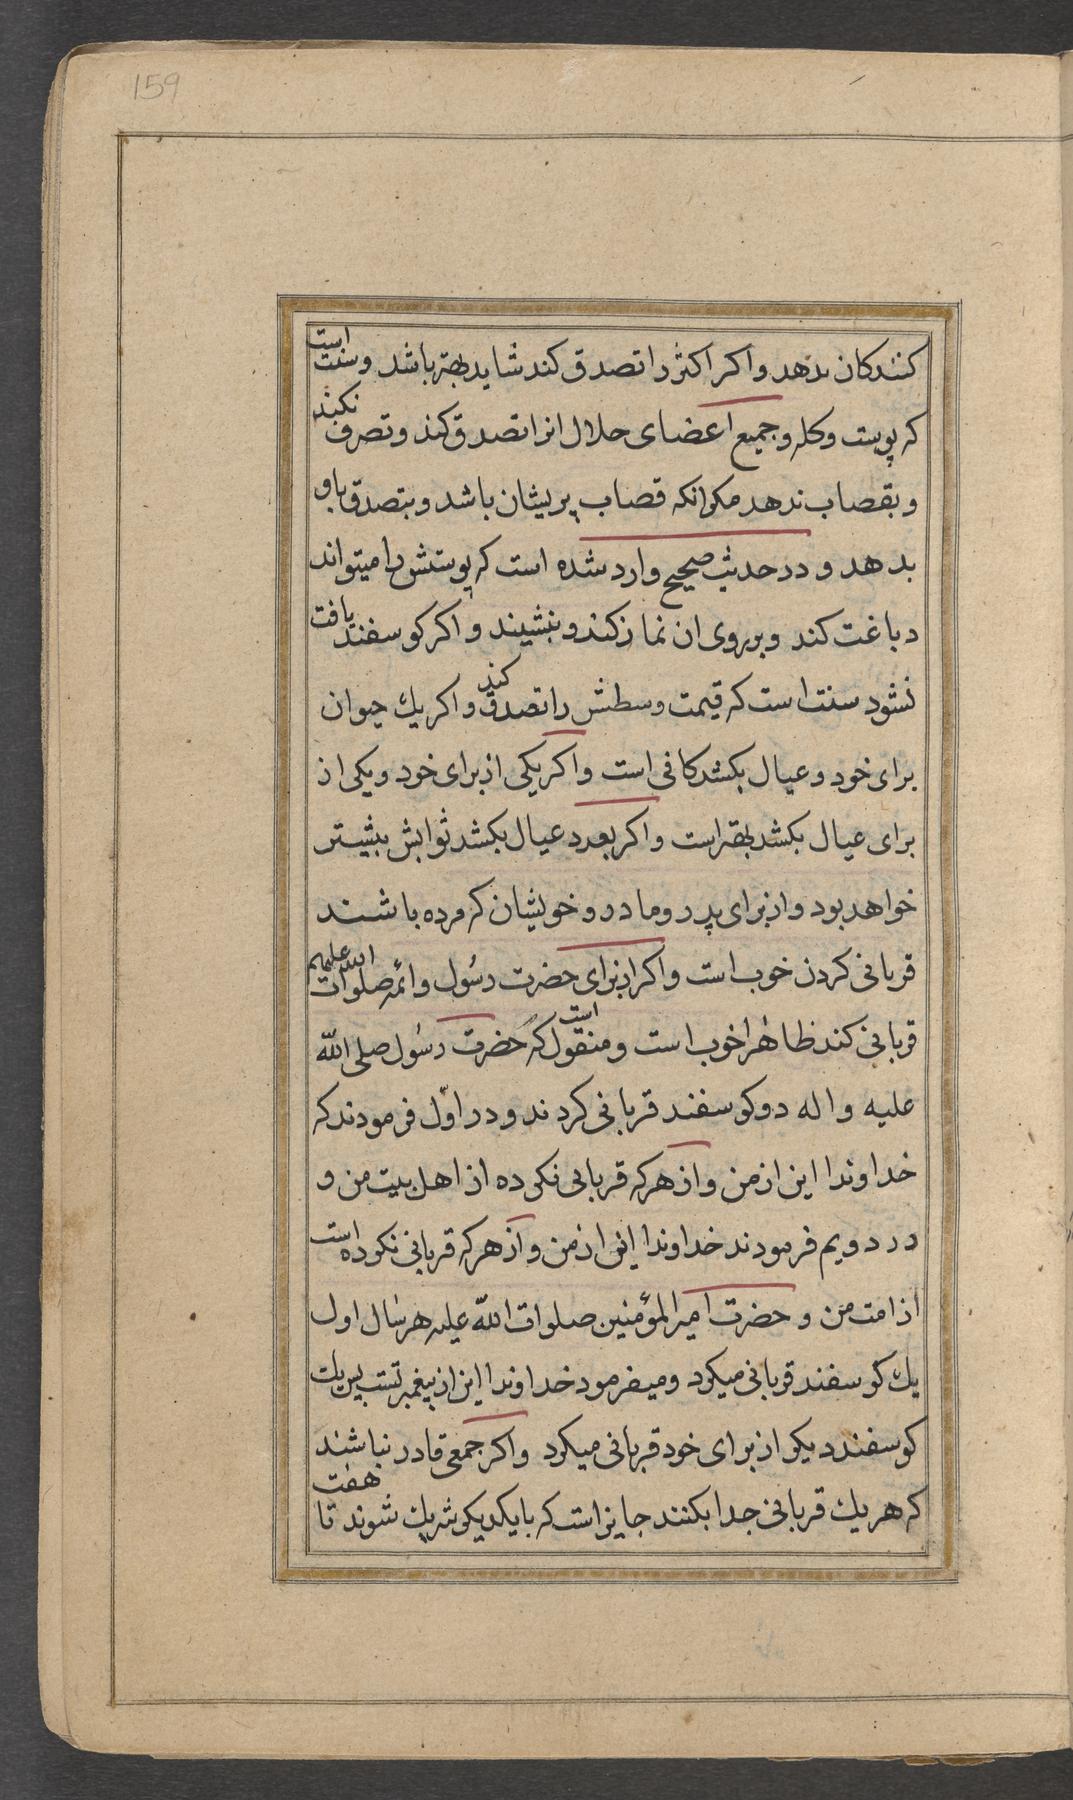 159
كنندكان بدهد و اكر اكثر را تصدق كند شايد بهتر باشد و سنت است
كه پوست و كله و جميع اعضاى حلال انرا تصدق كند و تصرف نكند
و بقصاب ندهد مكر انكه قصاب پريشان باشد و بتصدق باو
بدهد و در حديث صحيح وارد شده است كه پوستش را ميتواند
دباغت كند و بر روى ان نماز كند و بنشيند و اكر كوسفند يافت
نشود سنت است كه قيمت وسطش را تصدق كند و اكر يك حيوان
براى خود و عيال بكشد كافى است و اكر يكى از براى خود و يكى از
براى عيال بكشد بهتر است و اكر بعدد عيال بكشد ثوابش بيشتر
خواهد بود و از براى پدر و مادر و خويشان كه مرده باشند
قربانى كردن خوب است و اكر از براى حضرت رسول و ائمه صلوات الله عليهم
قربانى كند ظاهرا خوب است و منقول است كه حضرت رسول صلى الله
عليه و اله دو كوسفند قربانى كردند و در اوّل فرمودند كه
خداوندا اين از من و از هر كه قربانى نكرده از اهل بيت من و
در دويم فرمودند خداوندا اين از من و از هر كه قربانى نكرده است
از امت من و حضرت امير المؤمنين صلوات الله عليه هر سال اول
يك كوسفند قربانى ميكرد و ميفرمود خداوندا اين از پيغمبر تست پس يك
كوسفند ديكر از براى خود قربانى ميكرد و اكر جمعى قادر نباشند
كه هر يك قربانى جدا بكنند جايز است كه با يكديكر شريك شوند تا هفت